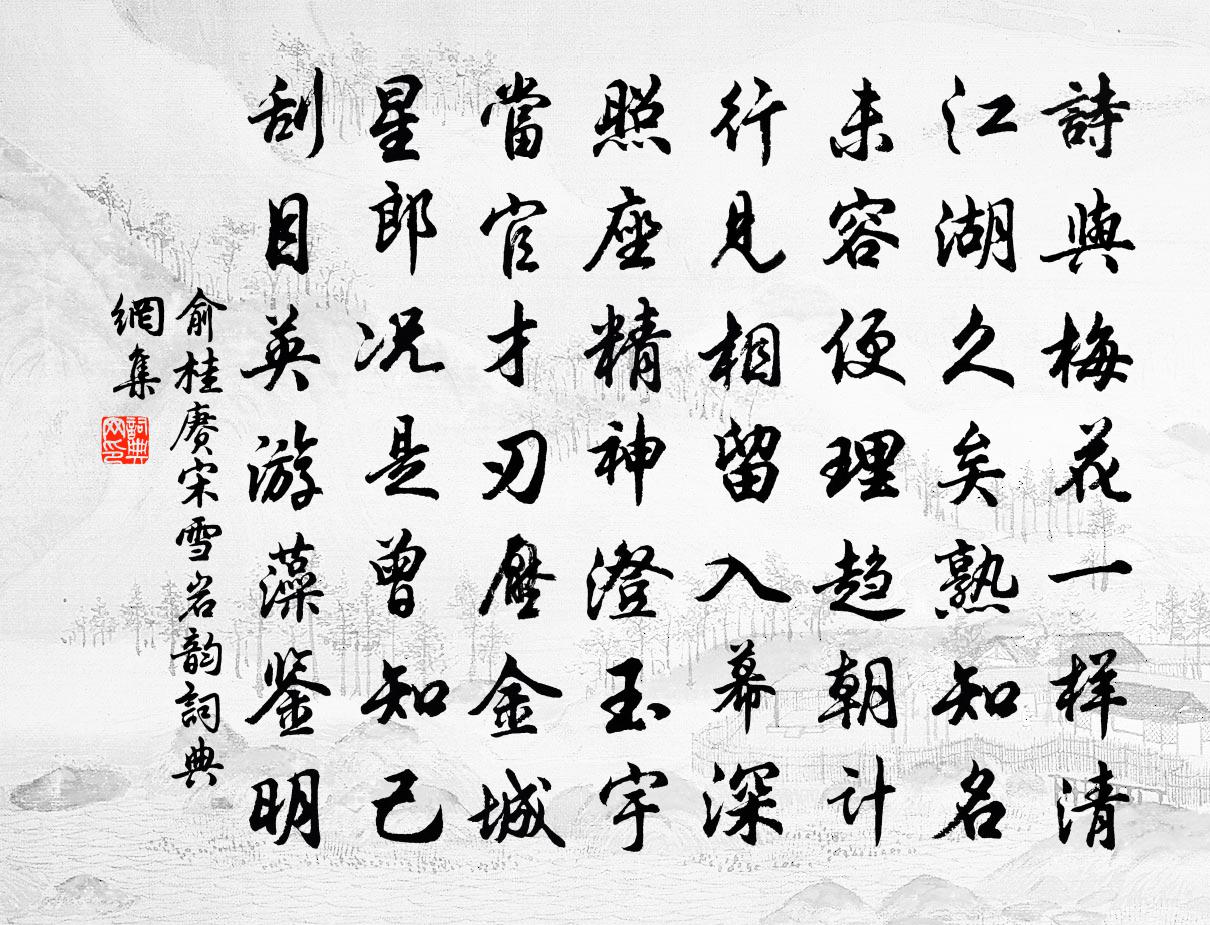 詩與梅花一样清
江湖久矣熟知名
未容便理趋朝計
行見相留入幕深
照座精神澄玉宇
當官才刃壓金城
星郎况是曾知己
刮目英游藻鉴明
俞桂赓宋雪岩韵詞典
網集
詞典
网印